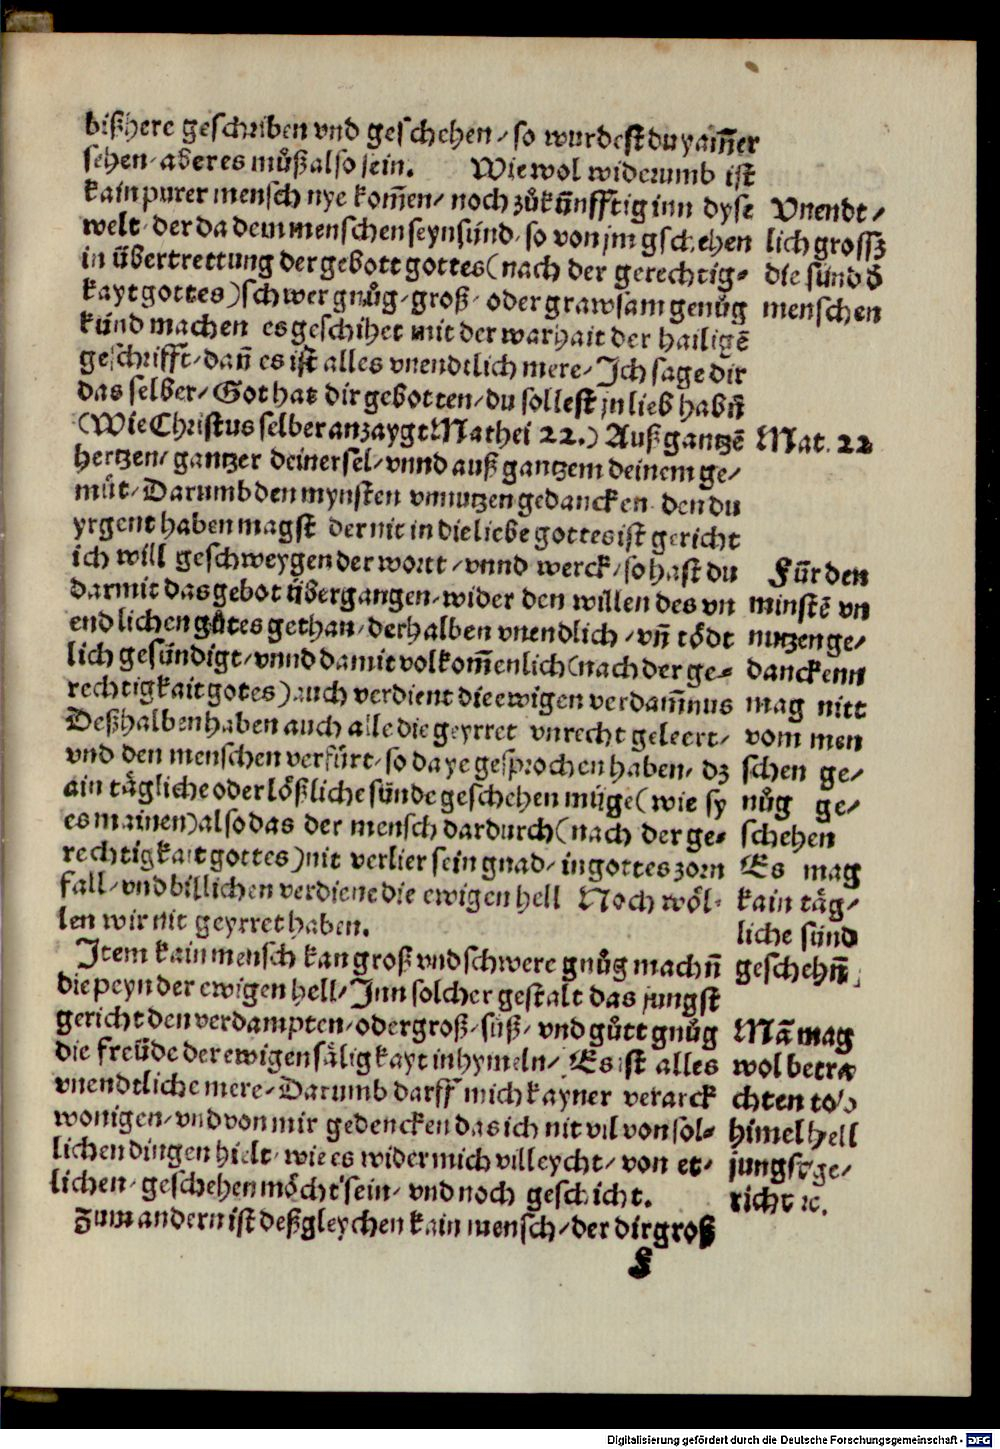 bißhere geschriben vnd geschehen/ so wurdest du yam̄er
sehen/ aber es můß also sein. Wie wol widerumb ist
kain purer mensch nye kom̄en/ noch zůkün̄fftig inn dyse
welt/ der da dem menschen seyn sünd/ so von jm gschehen
in übertrettung der gebott gottes (nach der gerechtig⸗
kayt gottes) schwer gnůg/ groß/ oder grawsam genůg
künd machen es geschihet mit der warhait der hailigē
geschrifft/ dan̄ es ist alles vnendtlich mere/ Ich sage dir
das selber/ Got hat dir gebotten/ du sollest jn lieb habn̄
(Wie Christus selber anzaygt Mathei 22.) Auß gantzē
hertzen/ gantzer deiner sel/ vnnd auß gantzem deinem ge/
müt/ Darumb den mynsten vnnutzen gedancken den du
yrgent haben magst der nit in die liebe gottes ist gericht
ich will geschweygen der wortt/ vnnd werck/ so hast du
darmit das gebot übergangen/ wider den willen des vn
endlichen gůtes gethan/ derhalben vnendlich/ vn̄ tödt
lich gesündigt/ vnnd damit volkom̄enlich (nach der ge⸗
rechtigkait gotes) auch verdient die ewigen verdam̄nus
Deßhalben haben auch alle die geyrret vnrecht geleert/
vnd den menschen verfürt/ so da ye gesprochen haben/ dz
ain tägliche oder lößliche sünde geschehen müge (wie sy
es mainen) also das der mensch dardurch (nach der ge⸗
rechtigkait gottes) nit verlier sein gnad/ in gottes zorn
fall/ vnd billichen verdiene die ewigen hell Noch wöl⸗
len wir nit geyrret haben.
Item kain mensch kan groß vnd schwere gnůg machn̄
die peyn der ewigen hell/ Inn solcher gestalt das jungst
gericht den verdampten/ oder groß/ süß/ vnd gůtt gnůg
die freüde der ewigen säligkayt in hymeln/ Es ist alles
vnendtliche mere/ Darumb darff mich kayner verarck
wonigen/ vnd von mir gedencken das ich nit vil von sol⸗
lichen dingen hielt/ wie es wider mich villeycht/ von et⸗
lichen/ geschehen möcht sein/ vnd noch geschicht.
Zum andern ist deßgleychen kain mensch/ der dir groß
F
Vnendt/
lich grossz
die sünd đ
menschen
Mat. 22
Für den
minstē vn
nutzen ge/
danckenn
mag nitt
vom men
schen ge/
nůg ge/
schehen
Es mag
kain täg/
liche sünd
geschehn̄
Mā mag
wol betra
chten tod
himel hell
jungst ge/
richt ꝛc.
Digitalisierung gefördert durch die Deutsche Forschungsgemeinschaft - DFG